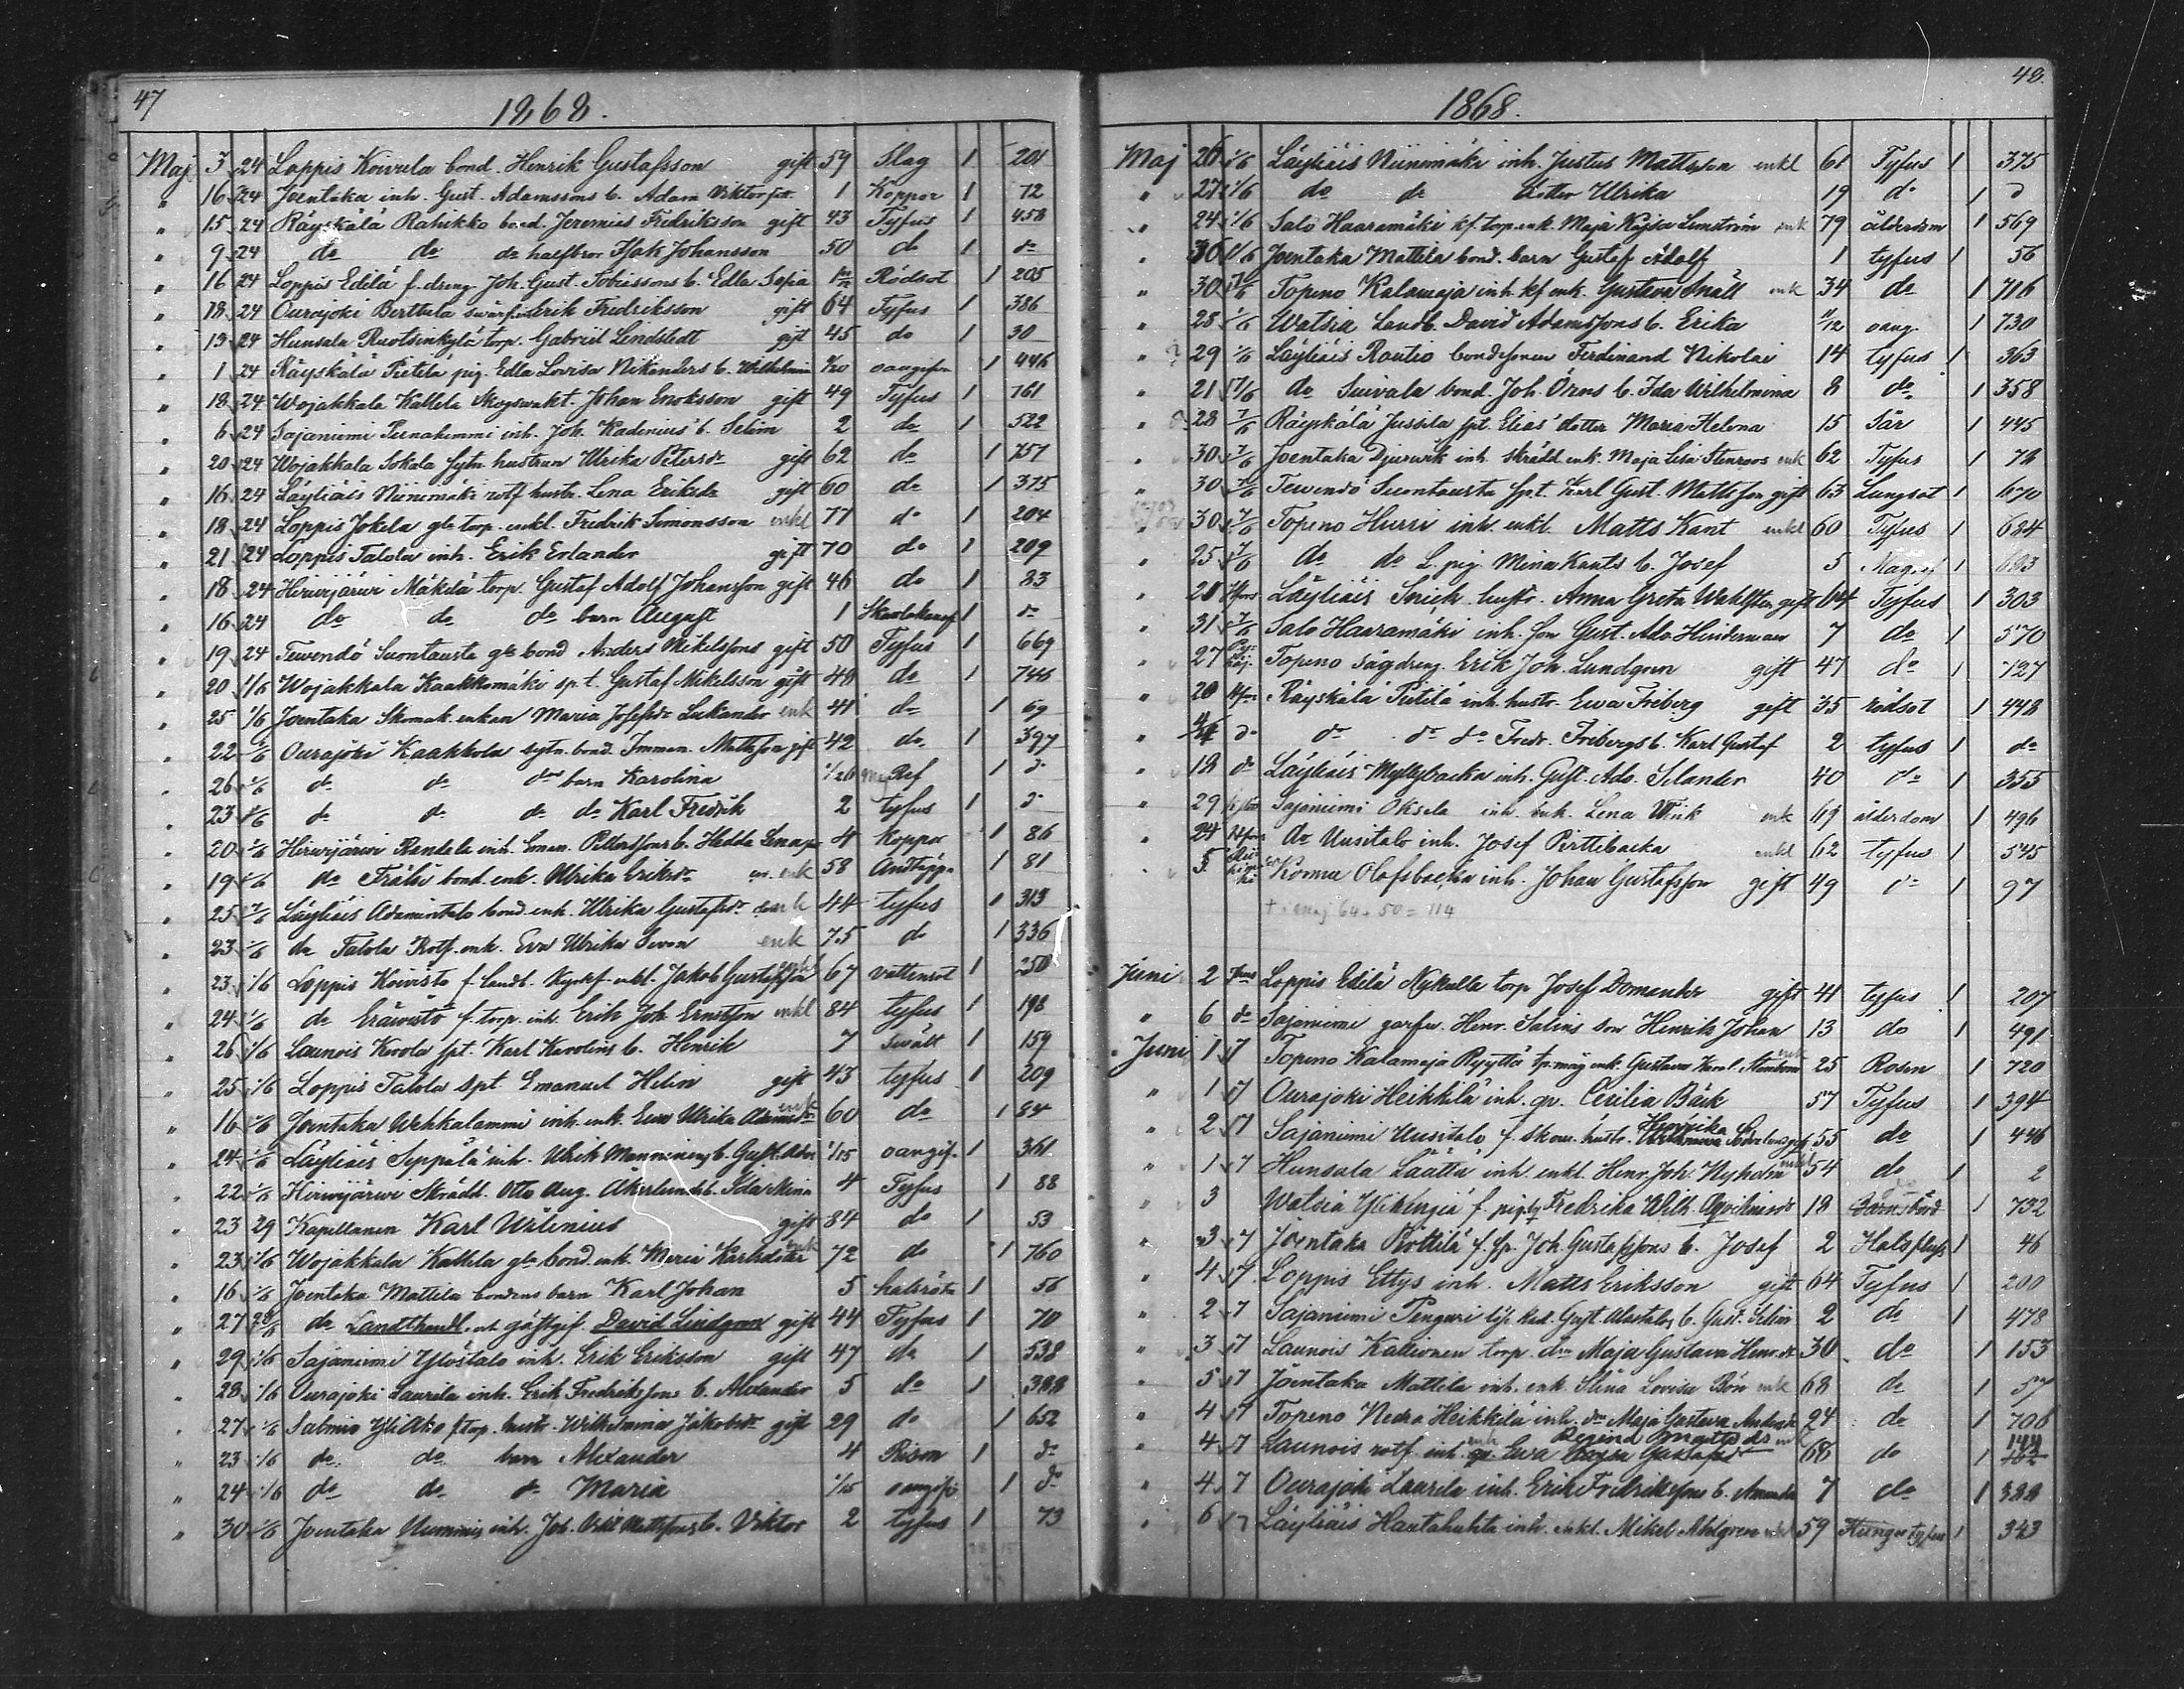 47
1868.
Maj 3 24 Loppis Koivula bond. Henrik Gustafsson gift 59 Slag 1 201
" 16 24 Joentaka inh. Gust. Adamssons b. Adam Viktor 1 Koppor 1 72
" 15 24 Räyskälä Rahikko bond. Jeremias Fredriksson gift 43 Tyfus 1 458
" 9 24 do do do halfbror Isak Johansson 50 do 1 do
" 16 24 Loppis Edilä f. dreng Joh. Gust. Tobiessons b. Edla Sofia Rödsot 1 205
" 18 24 Ourajoki Berttula Erik Fredriksson gift 64 Tyfus 1 386
" 13 24 Hunsala Ruotsinkylä torp. Gabriel Lindstedt gift 45 do 1 30
" 1 24 Räyskälä Pietilä pig. Edla Lovisa Nikanders b. Wilhelmina oangifven 1 446
" 18 24 Wojakkala Kallela Skogsvakt. Johan Enoksson gift 49 Tyfus 1 761
" 6 24 Sajaniemi inh. Joh. Kadenius b. Selim 2 do 1 522
" 20 24 Wojakkala Sokala sytn. hustrun Ulrika Petersdr gift 62 do 1 757
" 16 24 Läyliäis Niinimäki rotf hustr. Lena Eriksdr gift 60 do 1 375
" 18 24 Loppis Jokela gla torp. enkl. Fredrik Simonsson enkl 77 do 1 204
" 21 24 Loppis Talola inh. Erik Erlander gift 70 do 1 209
" 18 24 Hirvijärvi Mäkilä torp. Gustaf Adolf Johansson gift 46 do 1 83
" 16 24 do do do barn August 1 1 do
" 19 24 Tewendö Suontausta gla bond Anders Mikelssons gift 50 Tyfus 1 669
" 20 1/6 Wojakkala Kaakkomäki sp. t. Gustaf Mikelsson gift 48 do 1 746
" 25 1/6 Joentaka Skomak. enkan Maria Josefsdr Lukander enk 41 do 1 69
" 22 1/6 Ourajoki Kaakkola sytn. bond. Imman. Mattsson gift 42 do 1 397
" 26 1/6 do do dos barn Karolina Ref 1 do
" 23 1/6 do do do do Karl Fredrik 2 tyfus 1 do
" 20 1/6 Hirvijärvi Randela inh. Eman. Pettersssons b. Hedda Lena 4 koppor 1 86
" 19 1/6 do Frälsi bond. enk. Ulrika Eriksdr enk 58 Andtäppa 1 81
" 25 1/6 Läyliäis Adamintalo bond. enk. Ulrika Gustafsdr enk 44 tyfus 1 313
" 23 1/6 do Talola Rotf. enk. Eva Ulrika enk 75 do 1 336
" 23 1/6 Loppis Koivisto f. landb. enkl. Jakob Gustafsson 67 vattensot 1 250
" 24 1/6 do Eräwistö f. torp. inh. Erik Joh. Ernstsson enkl 84 tyfus 1 198
" 26 1/6 Launois Kerola spt. Karl Karolins b. Henrik 7 Swält 1 159
" 25 1/6 Loppis Talola spt Emanuel Helin gift 43 tyfus 1 209
" 16 1/6 Joentaka Wehkalammi inh. enk. Ewa Ulrika Adamsdr enk 60 do 1 84
" 24 1/6 Läyliäis Seppälä inh. Ulrik Manninens b. Gust. Adri 1/15 oangif. 1 361
" 22 1/6 Hirvijärvi Skrädd. Otto Aug. Åkerlunds b. Ida Mina 4 Tyfus 1 88
" 23 29 Kapellanen Karl Wilenius gift 84 do 1 53
" 23 1/6 Wojakkala Kallela gla bond. enk. Maria Karlsdotter enk 72 do 1 760
" 16 1/6 Joentaka Mattila bondens barn Karl Johan 5 halsröta 1 56
" 27 do Landthandl. och gästgif. David Lindgren gift 44 Tyfus 1 70
" 29 1/6 Sajaniemi Ylöstalo inh. Erik Eriksson gift 47 do 1 538
" 28 1/6 Ourajoki Laurila inh. Erik Fredrikssons b. Alexander 5 do 1 388
" 27 1/6 Salmis Yli Ako f torp. hustr. Wilhelmina Jakobsdr gift 29 do 1 652
" 23 1/6 do do barn Alexander 4 Rison 1 do
" 24 1/6 do do do Maria 1/15 oangifv 1 do
" 30 1/6 Joentaka Nummis inh. Joh. Mattssons b. Viktor 2 tyfus 1 73
48.
1868.
Maj 26 1/6 Läyliäis Niinimäki inh. Justus Mattsson enkl 61 Tyfus 1 375
" 27 1/6 do do dotter Ulrika 19 do 1 do
" 24 1/6 Salo Haaramäki kf. torp. enk. Maja Kajsa Lemström enk 79 ålderdom 1 569
" 30 1/6 Joentaka Mattila bond. barn Gustaf Adolf 1 tyfus 1 56
" 30 Topeno Kalamaja inh. kf enk. Gustava Snäll enk 34 do 1 716
" 28 1/6 Watsia Landb. David Adamssons b. Erika 11/12 oang. 1 730
" 29 1/6 Läyliäis Rautio bondsonen Ferdinand Nikolai 14 tyfus 1 363
" 21 do Suivala bond. Joh. Örns b. Ida Wilhelmina 8 do 1 358
" 28 7/6 Räyskälä Jussila spt. Elias dotter Maria Helena 15 Sår 1 445
" 30 7/6 Joentaka Djurwik inh. skrädd. enk. Maja Lisa Stenroos enk 62 Tyfus 1 78
" 30 7/6 Tewendö Suontausta spt. Karl Gust. Mattsson gift 63 Lungsot 1 670
" 30 7/6 Topeno Hurri inh. enkl. Matts Kant enkl 60 Tyfus 1 684
" 25 7/6 do do L. pig. Mina Kants b. Josef 5 1 683
" 28 Läyliäis hustr. Anna Greta Wahlsten gift 64 Tyfus 1 303
" 31 7/6 Salo Haaramäki inh. son Gust. Ado. Hinderman 7 do 1 570
" 27 Topeno Sågdreng. Erik Joh. Lundgren gift 47 do 1 727
" 20 Räyskälä Pietilä inh. hustr. Ewa Friberg gift 35 rödsot 1 448
" do do do do Fredr. Fribergs b. Karl Gustaf 2 tyfus 1 do
" 18 do Läyliäis Myllybacka inh. Gust. Ado. Selander 40 do 1 355
" 29 Sajaniemi Oksela inh. enk. Lena Wink enk 69 ålderdom 1 496
" 24 do Uusitalo inh. Josef Pirttibacka enkl 62 tyfus 1 545
" 5 Kormu Olofsbacka inh. Johan Gustafsson gift 49 do 1 97
† i maj 64 + 50 = 114
Juni 2 Loppis Edilä Nykulla torp Josef Domander gift 41 tyfus 1 207
" 6 do Sajaniemi garfv. Henr. Salins son Henrik Johan 13 do 1 491
Juni 1 7 Topeno Kalamaja enk. Gustava Karol. enk 25 Rosen 1 720
" 1 7 Ourajoki Heikkilä inh. qv. Cecilia Bäck 57 Tyfus 1 394
" 2 7 Sajaniemi Uusitalo f. skom. hustr. Fredrika gift 55 do 1 446
" 1 7 Hunsala Säättä inh. enkl. Henr. Joh. Nyholm enkl 54 do 1 2
" 3 Watsia Ylikengiä f. Fredrika Wilh. 18 Barnsbörd 1 732
" 3 7 Joentaka Pirttilä f. sp. Joh. Gustafssons b. Josef 2 Halsfluss 1 46
" 4 7 Loppis Ettys inh. Matts Eriksson gift 64 Tyfus 1 200
" 2 7 Sajaniemi Penguri Gust. Alastalos b. Gust. Selim 2 do 1 478
" 3 7 Launois Kallionen torp. dr Maja Gustava Henr.dr 30 do 1 153
" 5 7 Joentaka Mattila inh. enk. Stina Lovisa Bön enk 68 do 1 57
" 4 7 Topeno Nedra Heikkilä inh. dr Maja Gustava Andersdr 24 do 1 706
" 4 7 Launois rotf. inh. enk Ewa 68 do 1 144
" 4 7 Ourajoki Laurila inh. Erik Fredrikssons b. Amanda 7 do 1 388
" 6 7 Läyliäis Hautahuhta inh. enkl. Mikel Ahlgren enkl 59 Hunger tyfus 1 343